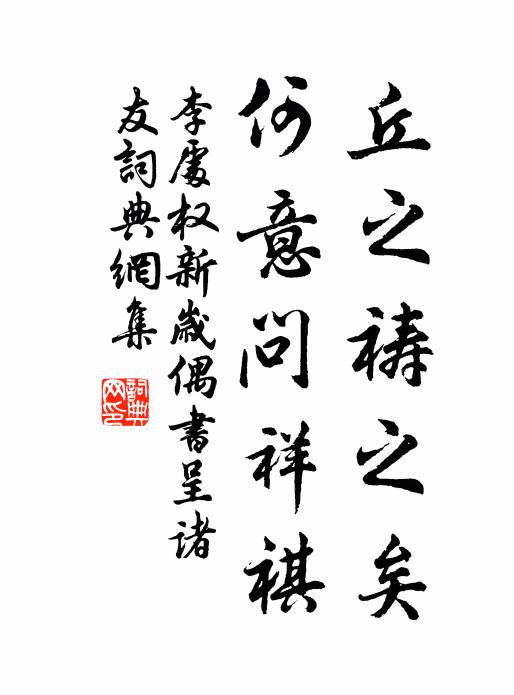 丘之祷之矣
何意问祥祺
李處权新歲偶書呈诸
友詞典網集
詞典网印